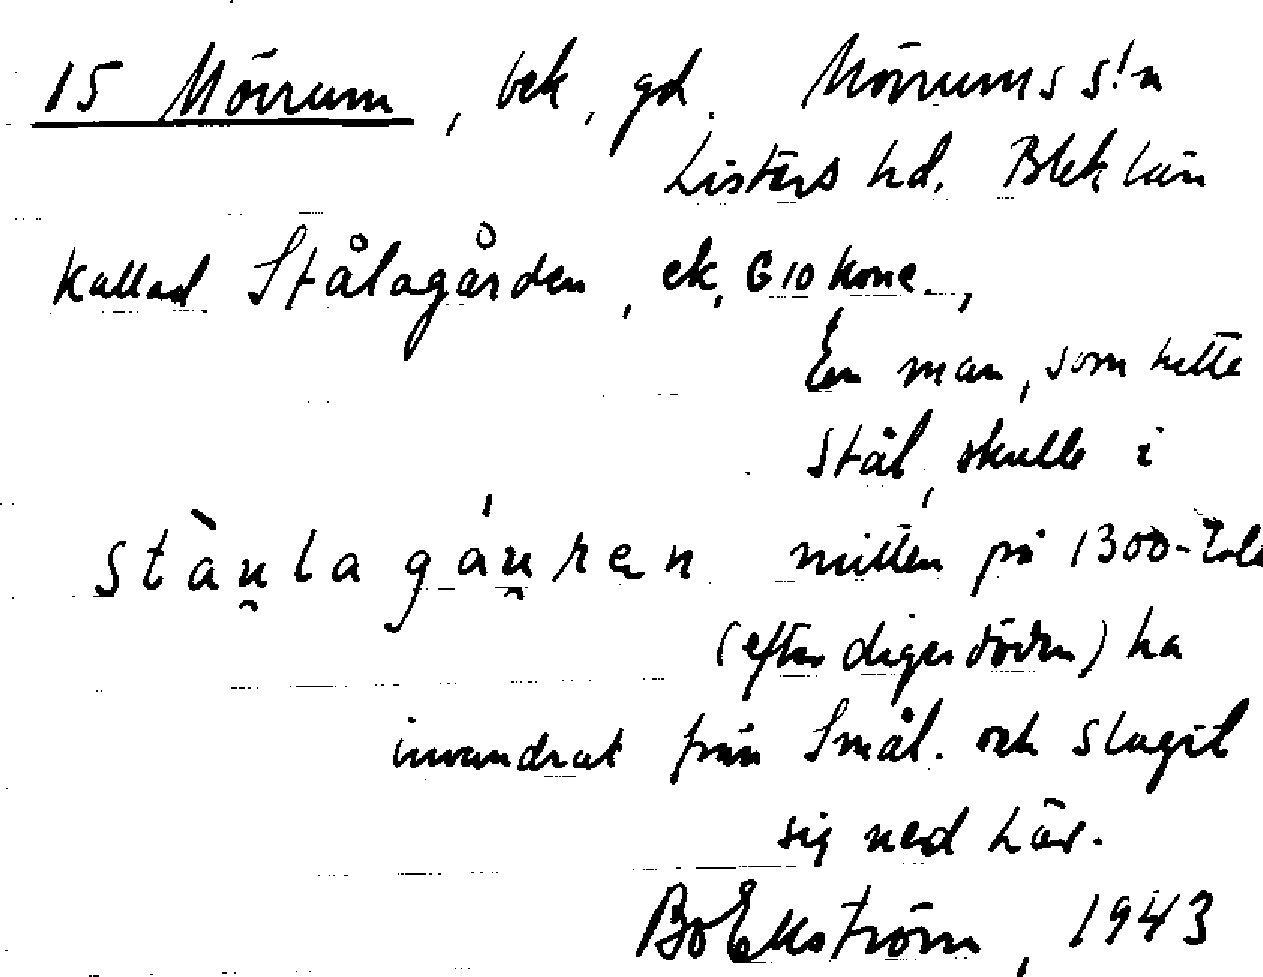 15 Mörrum, bek. gd. Mörrums s:n
Listers hd. Blek län
kallad Stålagården, ek. G 10 kone.,
En man, som hette
Stål, skulle i
stàu̯lagáu̯ren mitten på 1300-tale
(efter digerdöden) ha
invandrat från Smål. och slagit
sig ned här.
Bo Ekström, 1943